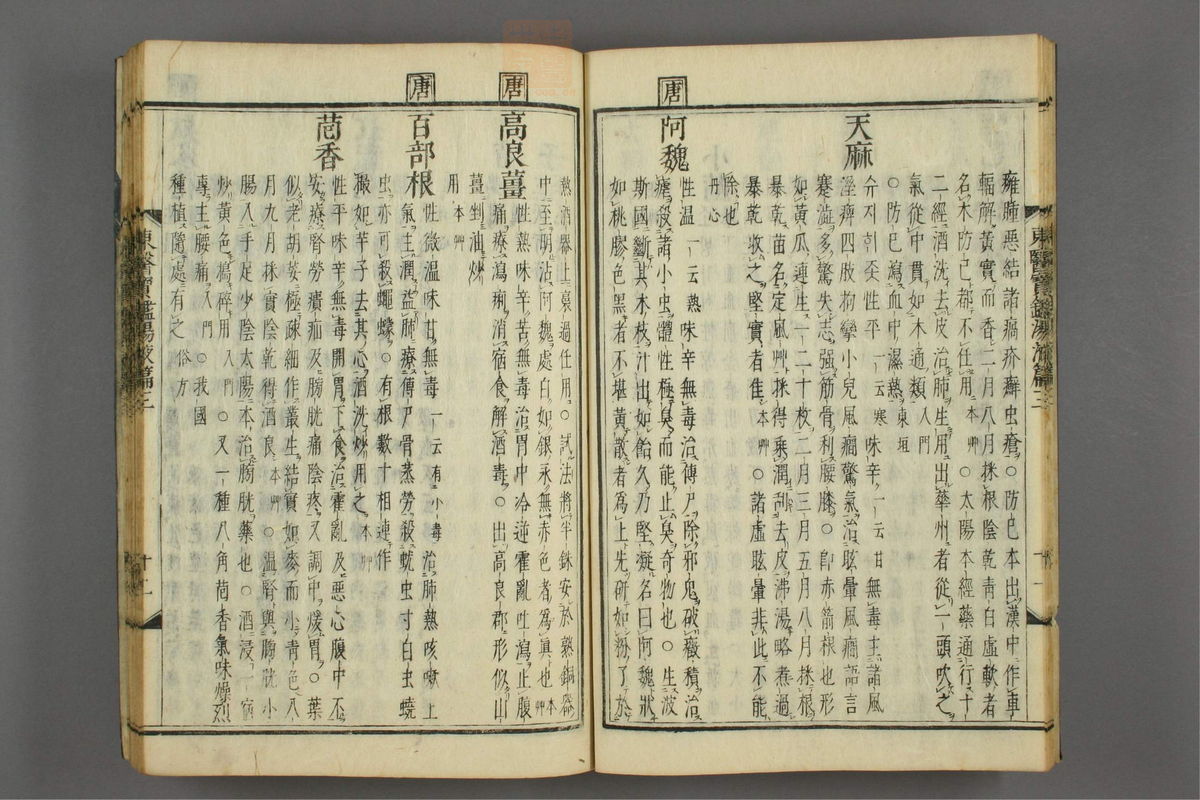 雍腫惡結諸瘑疥癬虫瘡○防巳本出漢中作車
輻解黃實而香二月八月採根陰乾靑白虛軟者
名木防巳都不任用本艸○太陽本經藥通行十
二經酒洗去皮治肺生用出華州者從一頭吹之
氣從中貫如木通類入門
○防巳瀉血中濕熱東垣
天麻
分지히좃性平一云寒味辛一云甘無毒主諸風
溼痺四肢拘攣小兒風癎驚氣治眩暈風癎語言
蹇澁多驚失志强筋骨利腰膝○卽赤箭根也形
如黃瓜連生一二十枚二月三月五月八月採根
暴乾苗名定風艸採得乘潤刮去皮沸湯略煮過
暴乾收之堅實者佳本艸○諸虛眩暈非此不能
除也
丹心
唐
阿魏
性温一云熱味辛無毒治傳尸除邪鬼破癥積治
瘧殺諸小虫體性極臭而能止臭奇物也○生波
斯國斷其木枝汁出如飴久乃堅凝名曰阿魏狀
如桃膠色黑者不堪黃散者爲上先硏如粉了於
熱酒器上裛過任用○試法將半銖安於熟銅器
中至明沾阿魏處白如銀永無赤色者爲眞也本艸
唐
高良薑
性熱味辛苦無毒治胃中冷逆霍亂吐瀉止腹
痛療瀉痢消宿食解酒毒○出高良郡形似山
薑剉油炒
用本艸
唐
百部根
性微温味甘無毒一云有小毒治肺熱咳嗽上
氣主潤益肺療傳尸骨蒸勞殺蚘虫寸白虫蟯
虫亦可殺蠅蠓○有根數十相連作
撮如芋子去其心酒洗炒用之本艸
茴香
性平味辛無毒開胃下食治霍亂及惡心腹中不
安療腎勞㿗疝及膀胱痛陰疼又調中煖胃○葉
似老胡荽極疎細作叢生結實如麥而小靑色八
月九月採實陰乾得酒良本艸○温腎與膀胱小
腸入手足少陰太陽本治膀胱藥也○酒浸一宿
炒黃色搗碎用入門○又一種八角茴香氣味燥烈
專主腰痛入門○我國
種植隨處有之俗方
東醫寶鑑湯液篇三
東醫寶鑑湯液篇三